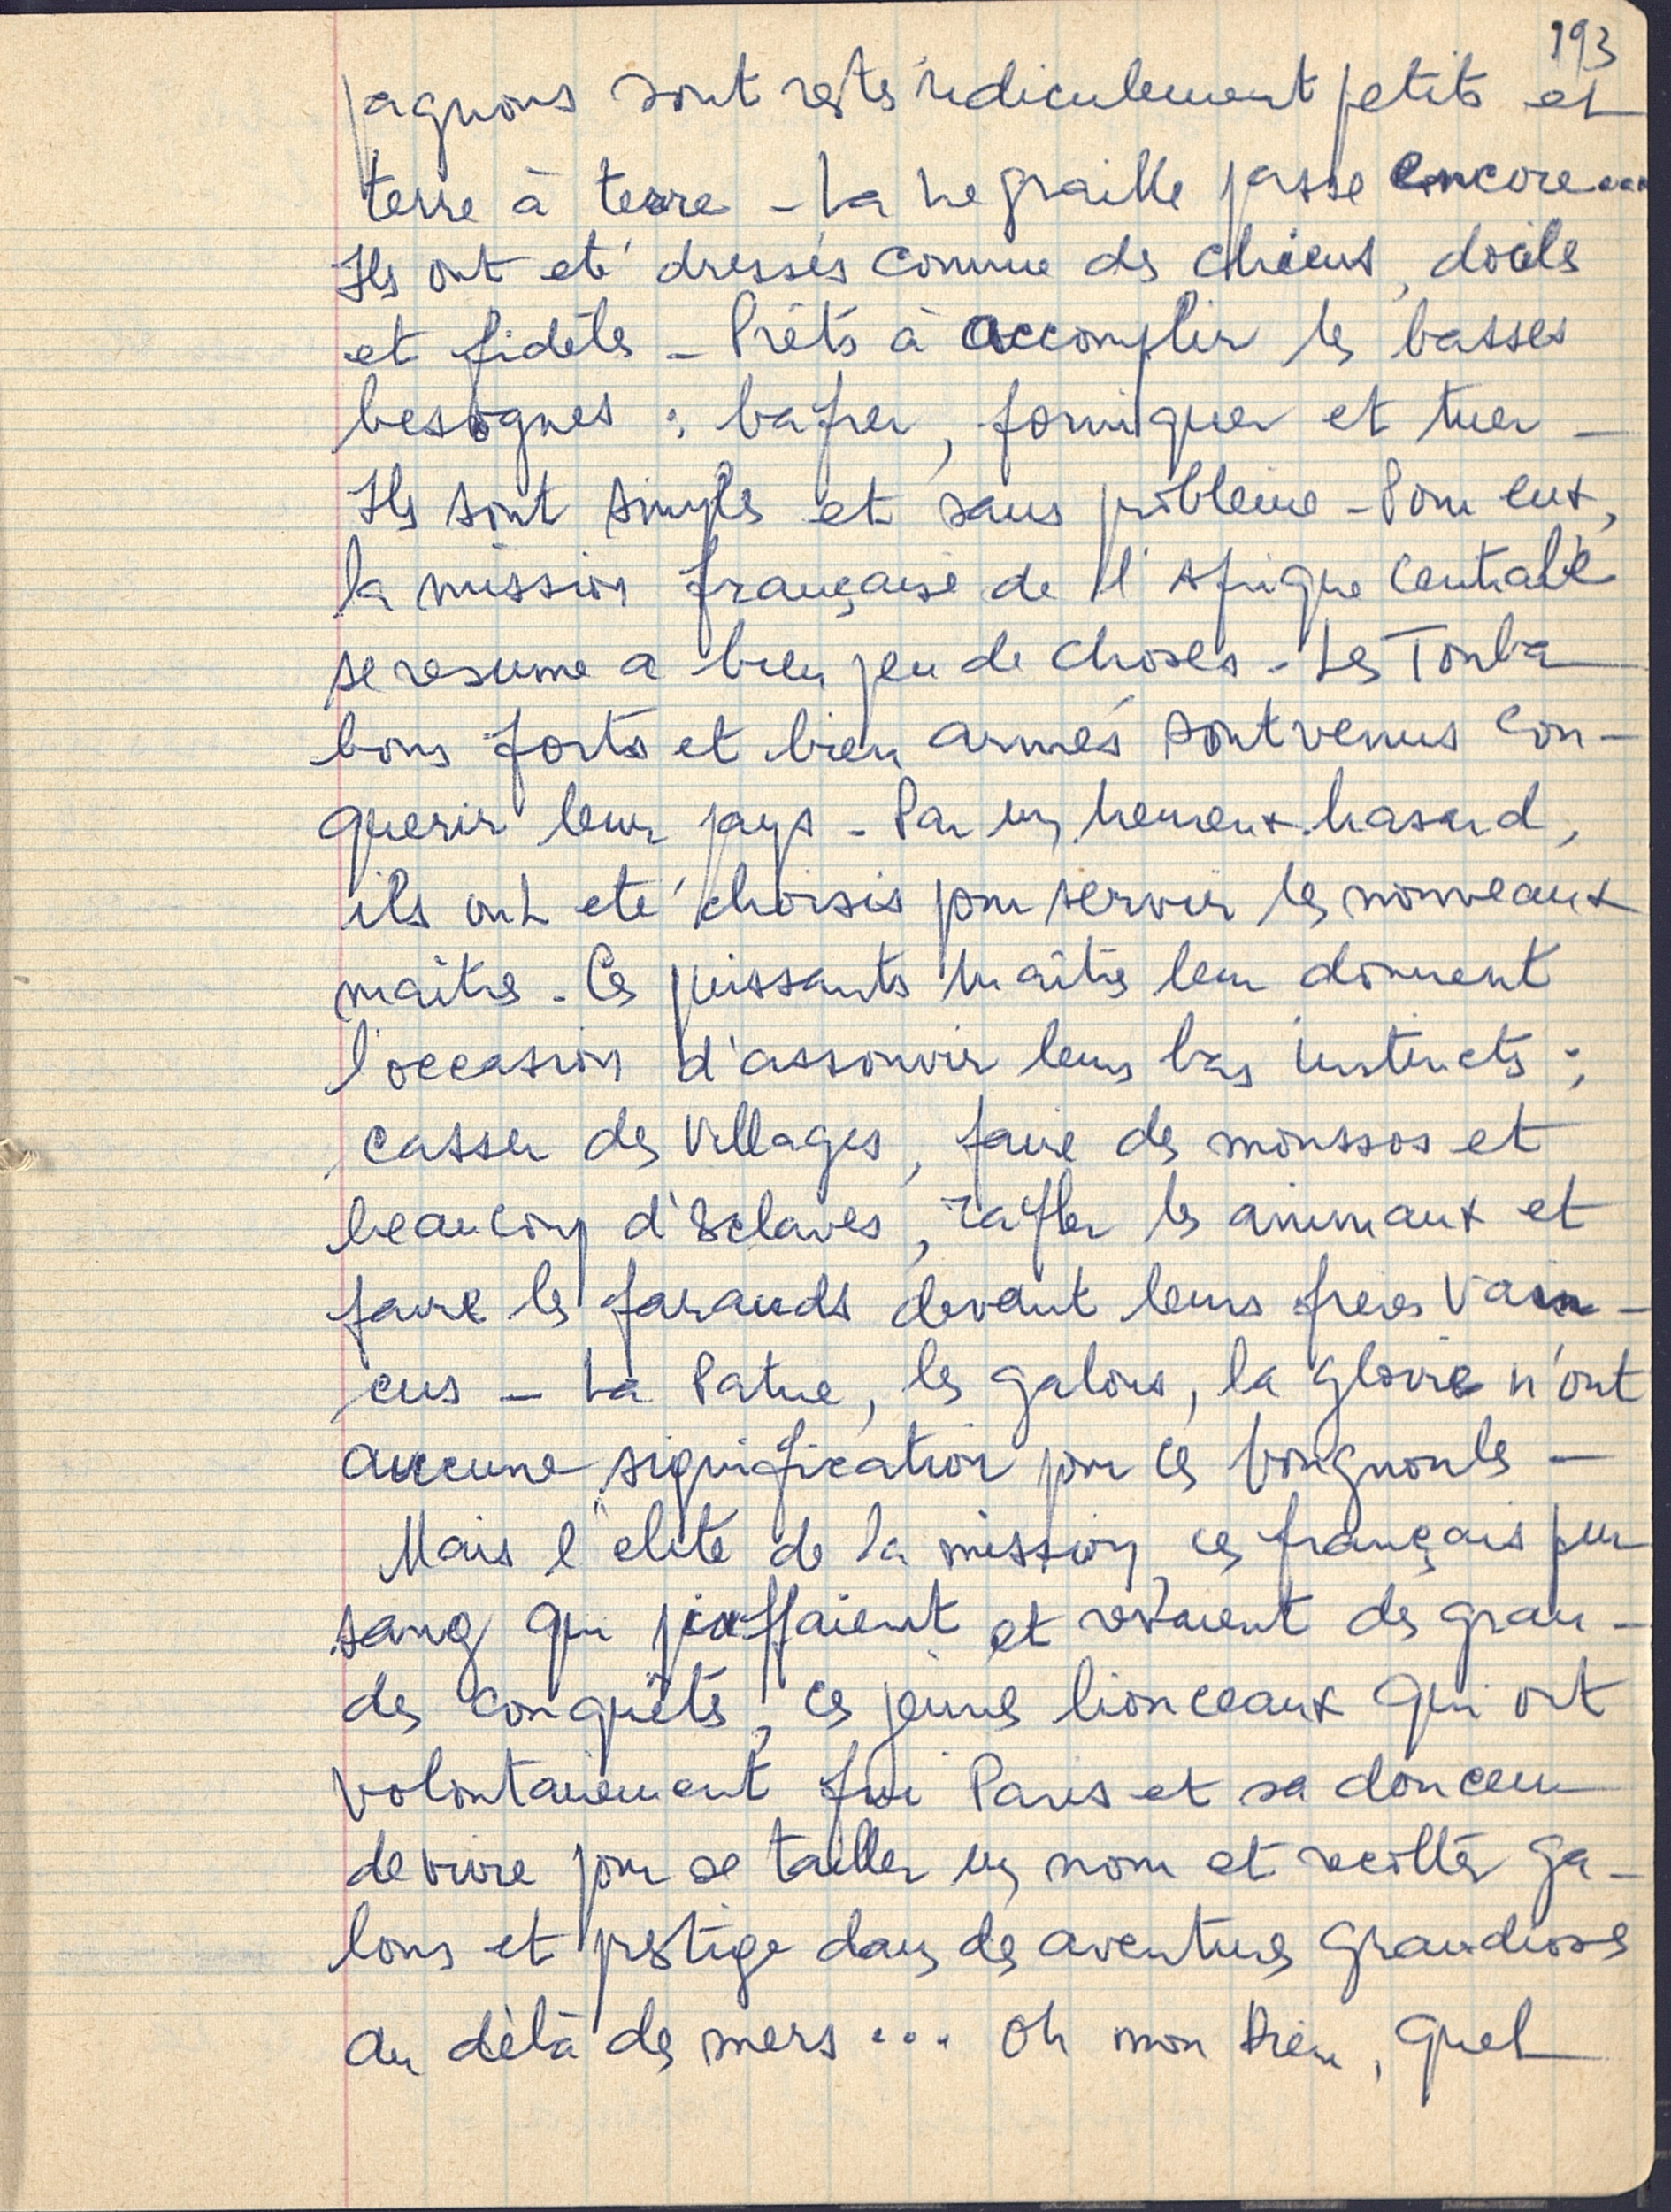 193
pagnons sont restés ridiculement petits et
terre à terre - La négraille passe encore...
Ils ont été dressés comme des chiens, dociles
et fidèles - Prêts à accomplir les basses
besognes : bafrer, forniquer et tuer -
Ils sont simples et sans problème - Pour eux,
la mission française de l'Afrique Centrale
se resume a bien peu de choses - Les Touba
bous forts et bien armés sont venus con-
querir leur pays - Par un heureux hasard,
ils ont eté choisis pour servir les nouveaux
maitres - Ces puissants maîtres leur donnent
l'occasion d'assouvir leurs bas instincts :
casser des villages, faire des moussos et
beaucoup d'esclaves, rafler les animaux et
faire les farauds devant leurs freres vain-
cus - La Patrie, les galons, la gloire n'ont
aucune signification pour ces bougnouls -
Mais l'élite de la mission, ces français pur
sang qui piaffaient et rêvaient de gran-
des conquêtes, ces jeunes lionceaux qui ont
volontairement fui Paris et sa douceur
de vivre pour se tailler un nom et recolter ga-
lons et prestige dans des aventures grandioses
au délà des mers ... Oh mon Dieu, quel